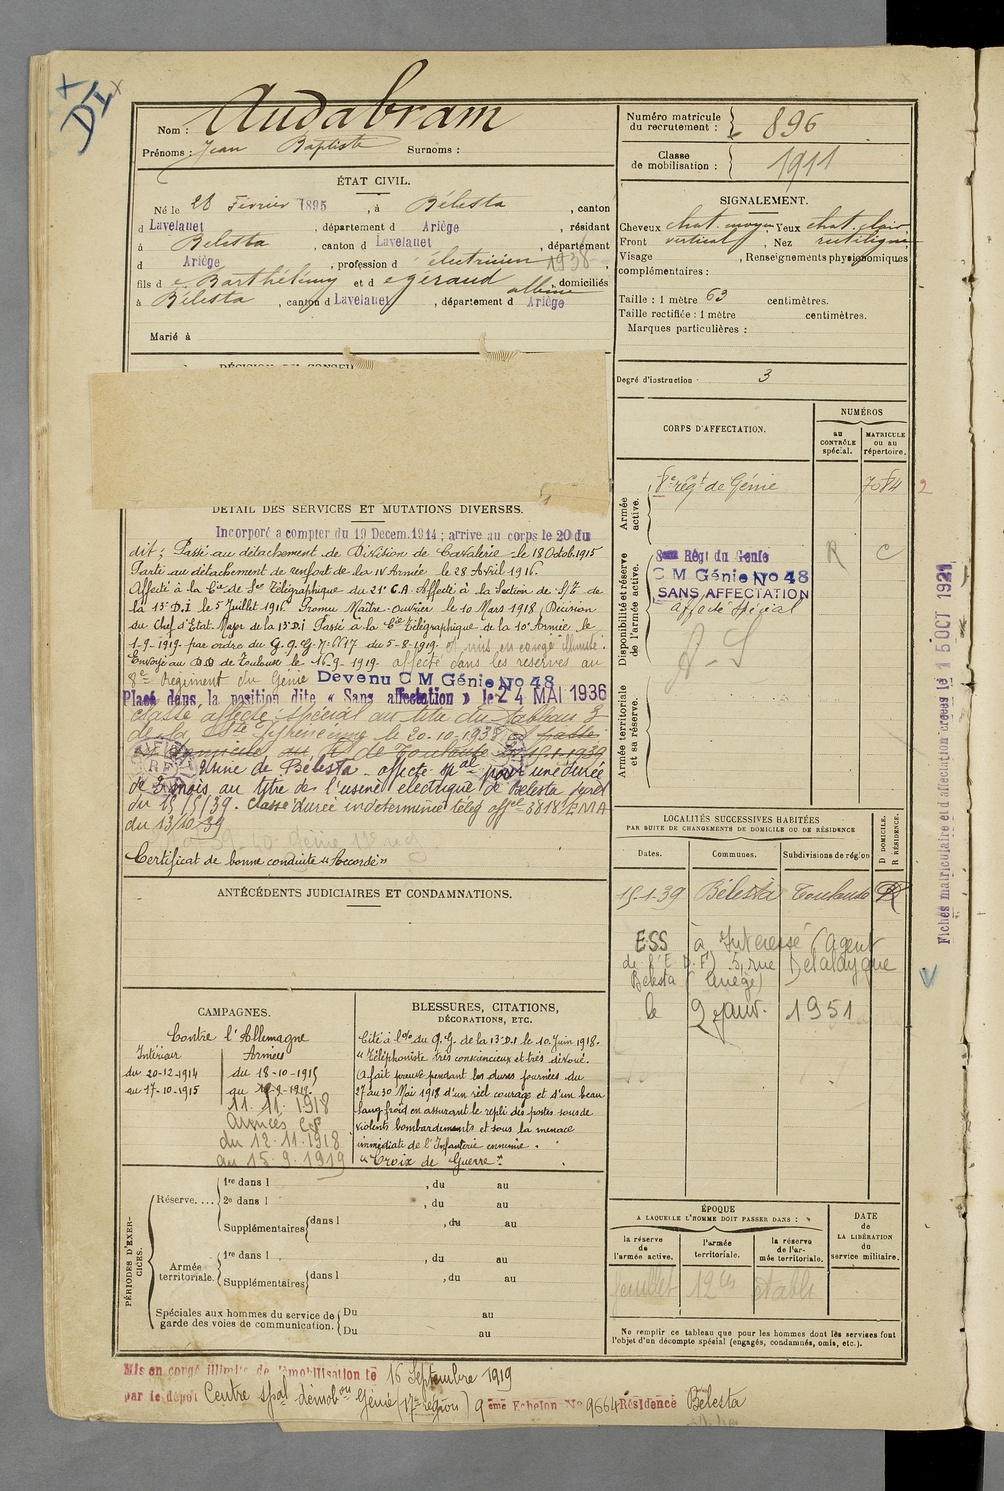 DI
Nom : Audabram
Prénoms : Jean Baptiste Surnoms :
ÉTAT CIVIL.
Né le 28 Février 1895, à Bélesta, canton
d Lavelanet, département d Ariège, résidant
à Belesta, canton d Lavelanet, département
d Ariège, profession d électricien 1938
fils de Barthélemy et de géraud albine, domiciliés
à Bélesta, canton d Lavelanet, département d Ariège
Marié à
DÉTAIL DES SERVICES ET MUTATIONS DIVERSES.
Incorporé a compter du 19 Decem. 1914 ; arrive au corps le 20 du
dit ; Passé au détachement de Division de Cavalerie le 18 Octob. 1915
Parti au détachement de renfort de la IV Armée le 28 Avril 1916.
Affecté à la Cie de Son Télégraphique du 21e C.A. Affecté à la Section de de
la 13e D.I le 5 Juillet 1916 Promu Maître-Ouvrier le 10 Mars 1918 (Décision
du Chef d'Etat Major de la 13e D.I Passé à la Cie Télégraphique de la 10e Armée le
1-9-1919 par ordre du G.Q.G. n° 6117 du 5-8-1919. et mis en congé illimité.
Envoyé au D.D de Toulouse le 16-9-1919. affecté dans les réserves au
8e Régiment du Génie Devenu C M Génie No 48
Placé dans la position dite « Sans affectation » le 24 MAI 1936
classé affecté spécial au titre du tableau 3
de la le 20-10-1938 passé
de Toulouse 15-1-1939
Usine de Bélesta affecté spal pour une durée
de 3 mois au titre de l'usine électrique de Belesta
du 15/5/39. Classé durée indéterminée télég offel 3818/EMA
du 13/10/39
Certificat de bonne conduite "Accordé"
ANTÉCÉDENTS JUDICIAIRES ET CONDAMNATIONS.
CAMPAGNES.
Contre l'Allemagne
Intérieur Armées
du 20-12-1914 du 18-10-1915
au 17-10-1915 au
11. 11. 1918
Armées
du 12.11.1918
au 15.9.1919
BLESSURES, CITATIONS,
DÉCORATIONS, ETC.
Cité à l'ordre du Q.G. de la 13e D.I le 10 Juin 1918.
"Téléphoniste très consciencieux et très dévoué.
A fait preuve pendant les dures journées du
27 au 30 Mai 1918 d'un réel courage et d'un beau
sang-froid en assurant le repli des postes sous de
violents bombardements et sous la menace
immédiate de l'Infanterie ennemie.
"Croix de Guerre".
PÉRIODES D'EXERCICES.
Réserve.... 1re dans l , du au
2e dans l , du au
Supplémentaires dans l , du au
Armée territoriale. 1re dans l , du au
Supplémentaires dans l , du au
Spéciales aux hommes du service de garde des voies de communication. Du au
Du au
Mis en congé illimité de démobilisation le 16 Septembre 1919
par le dépôt Centre spal démobon Génie (17e région) 9ème Echelon No 9664 Résidence Bélesta
Numéro matricule du recrutement : 896
Classe de mobilisation : 1911
SIGNALEMENT.
Cheveux chat. moyen Yeux chat. clair
Front vertical, Nez rectiligne
Visage , Renseignements physiognomiques
complémentaires :
Taille : 1 mètre 63 centimètres.
Taille rectifiée : 1 mètre centimètres.
Marques particulières :
Degré d'instruction 3
CORPS D'AFFECTATION.
NUMÉROS
au CONTRÔLE spécial.
MATRICULE ou au répertoire.
Armée active.
8e régt de Génie 7084 2
Disponibilité et réserve de l'armée active.
8eme Régt du Genie R C
C M Génie No 48
SANS AFFECTATION
affecté spécial
A-S
Armée territoriale et sa réserve.
LOCALITÉS SUCCESSIVES HABITÉES
PAR SUITE DE CHANGEMENTS DE DOMICILE OU DE RÉSIDENCE
Dates. Communes. Subdivisions de région D DOMICILE. R RÉSIDENCE.
15-1-39 Bélesta Toulouse R
ESS à Intéressé (Agent
de l'E.D.F) 5, rue Delalayque
Belesta (Ariège)
le 9 janv. 1951
ÉPOQUE
A LAQUELLE L'HOMME DOIT PASSER DANS :
la réserve de l'armée active.
l'armée territoriale.
la réserve de l'armée territoriale.
DATE de LA LIBÉRATION du service militaire.
Ne remplir ce tableau que pour les hommes dont les services font
l'objet d'un décompte spécial (engagés, condamnés, omis, etc.).
Fiches matriculaire et d'affectation créées le 15 OCT 1921